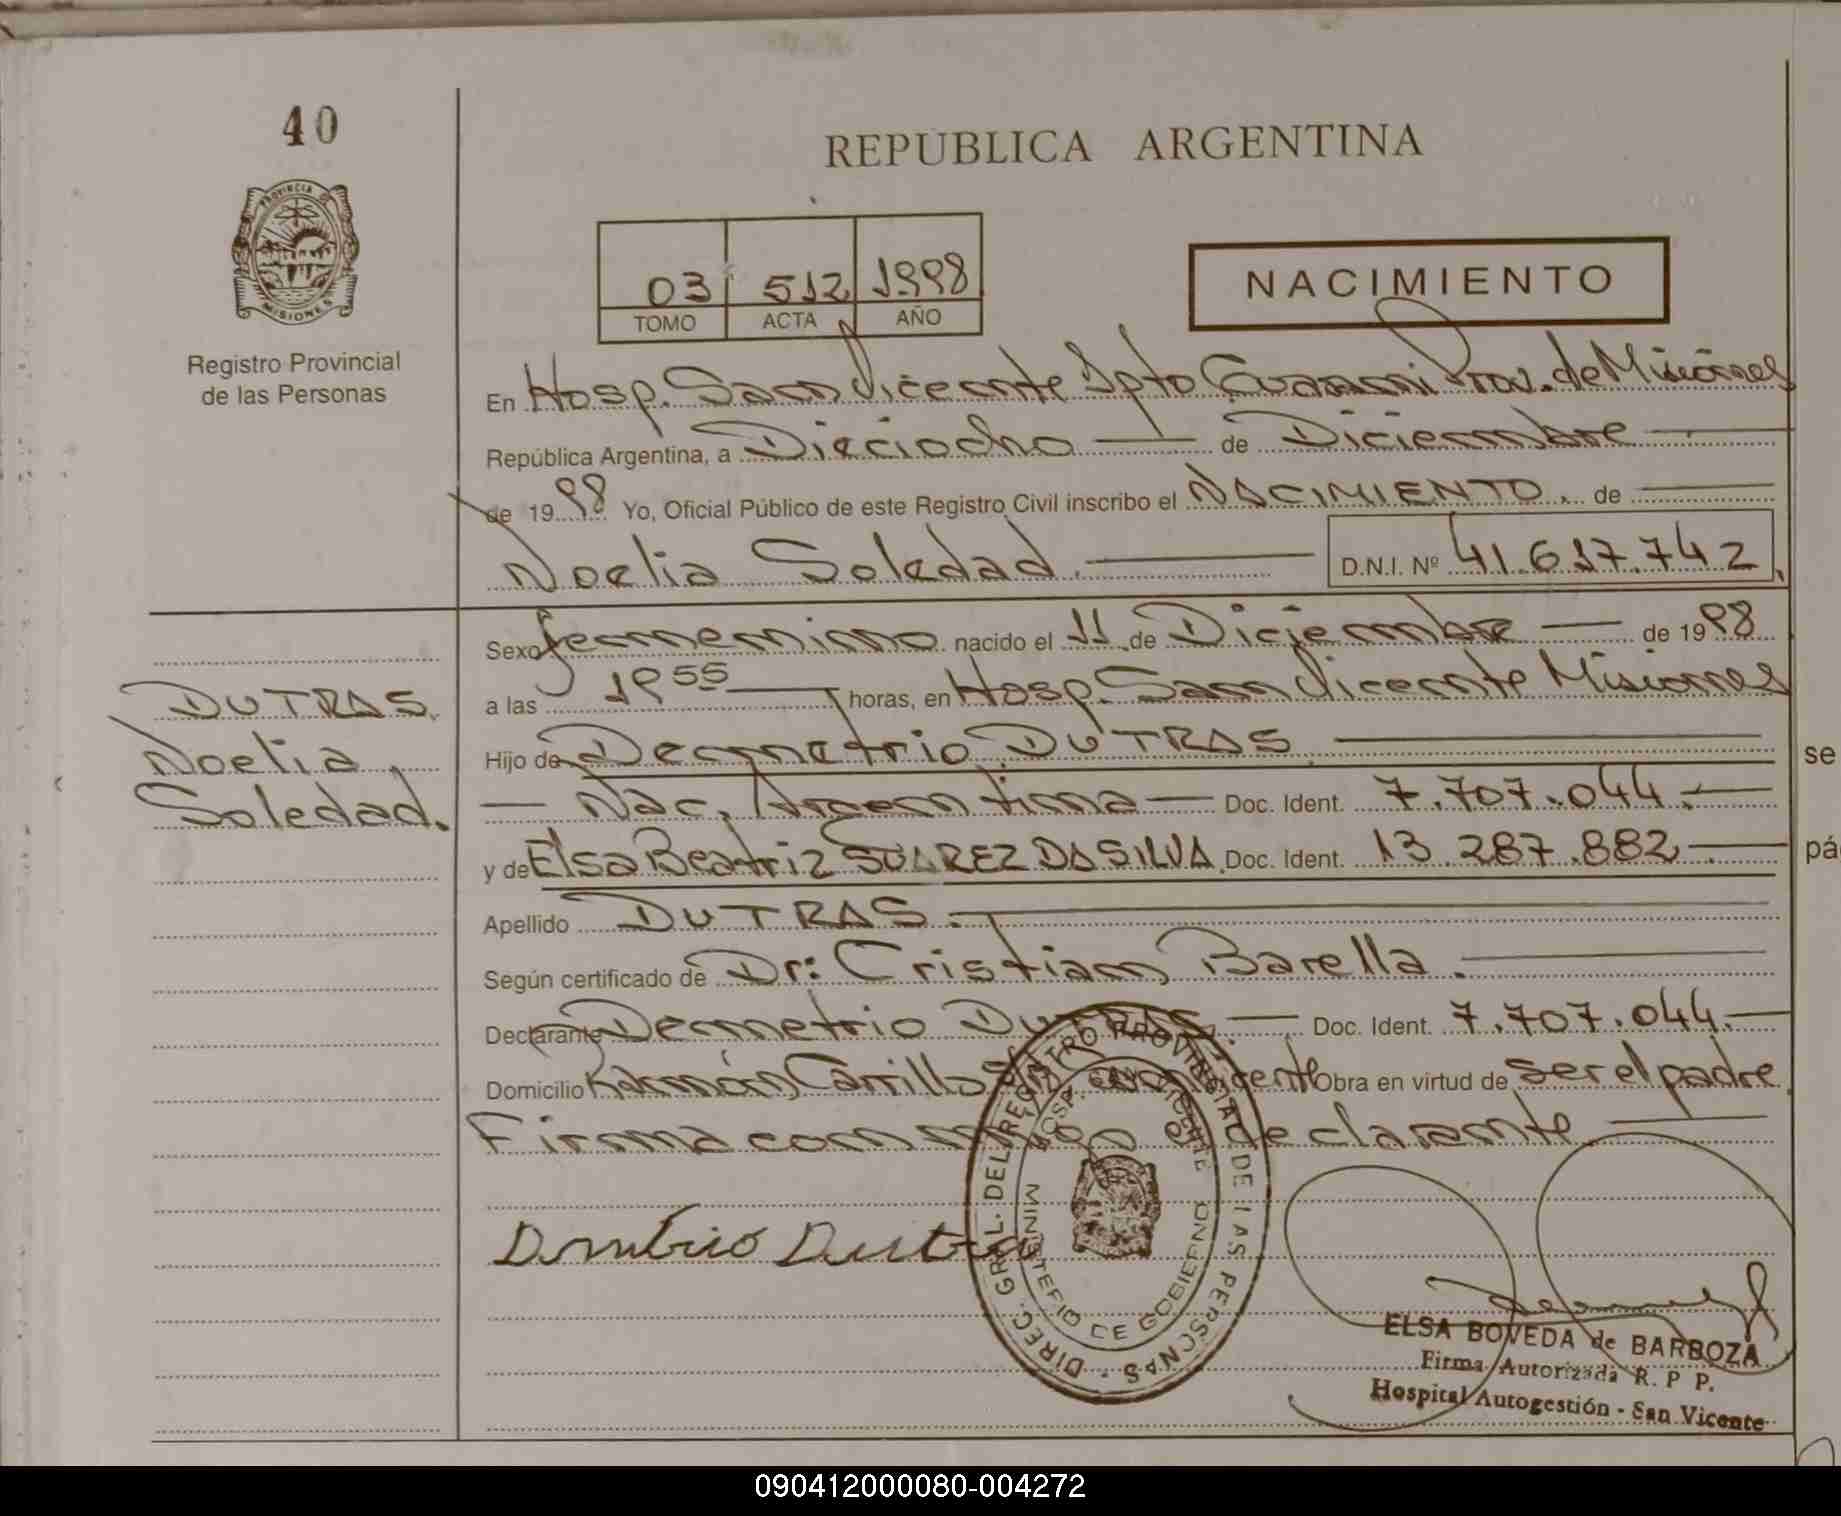 40
REPUBLICA ARGENTINA
PROVINCIA DE
MISIONES
Registro Provincial
de las Personas
03 512 1998
TOMO ACTA AÑO
NACIMIENTO
En Hosp. San Vicente Dpto Guarani Prov. de Misiones
República Argentina, a Dieciocho de Diciembre
de 1998 Yo, Oficial Público de este Registro Civil inscribo el NACIMIENTO. de
Noelia Soledad. D.N.I. Nº 41.617.742
Sexo femenino nacido el 11 de Diciembre de 1998
a las 19 55 horas, en Hosp. San Vicente Misiones
DUTRAS.
Noelia
Soledad.
Hijo de Demetrio DUTRAS
Nac. Argentina Doc. Ident. 7.707.044.
y de Elsa Beatriz SUAREZ DA SILVA. Doc. Ident. 13.287.882
Apellido DUTRAS.
Según certificado de Dr: Cristian Barella.
Declarante Demetrio DUTRAS. Doc. Ident. 7.707.044.
Domicilio Ramón Carrillo San Vicente Obra en virtud de ser el padre
Firma conmigo el declarante
DIREC. GRAL. DEL REGISTRO PROVINCIAL DE LAS PERSONAS
HOSP. SAN VICENTE
MINISTERIO DE GOBIERNO
ELSA BOVEDA de BARBOZA
Firma Autorizada R. P P.
Hospital Autogestión - San Vicente
se
pá
090412000080-004272